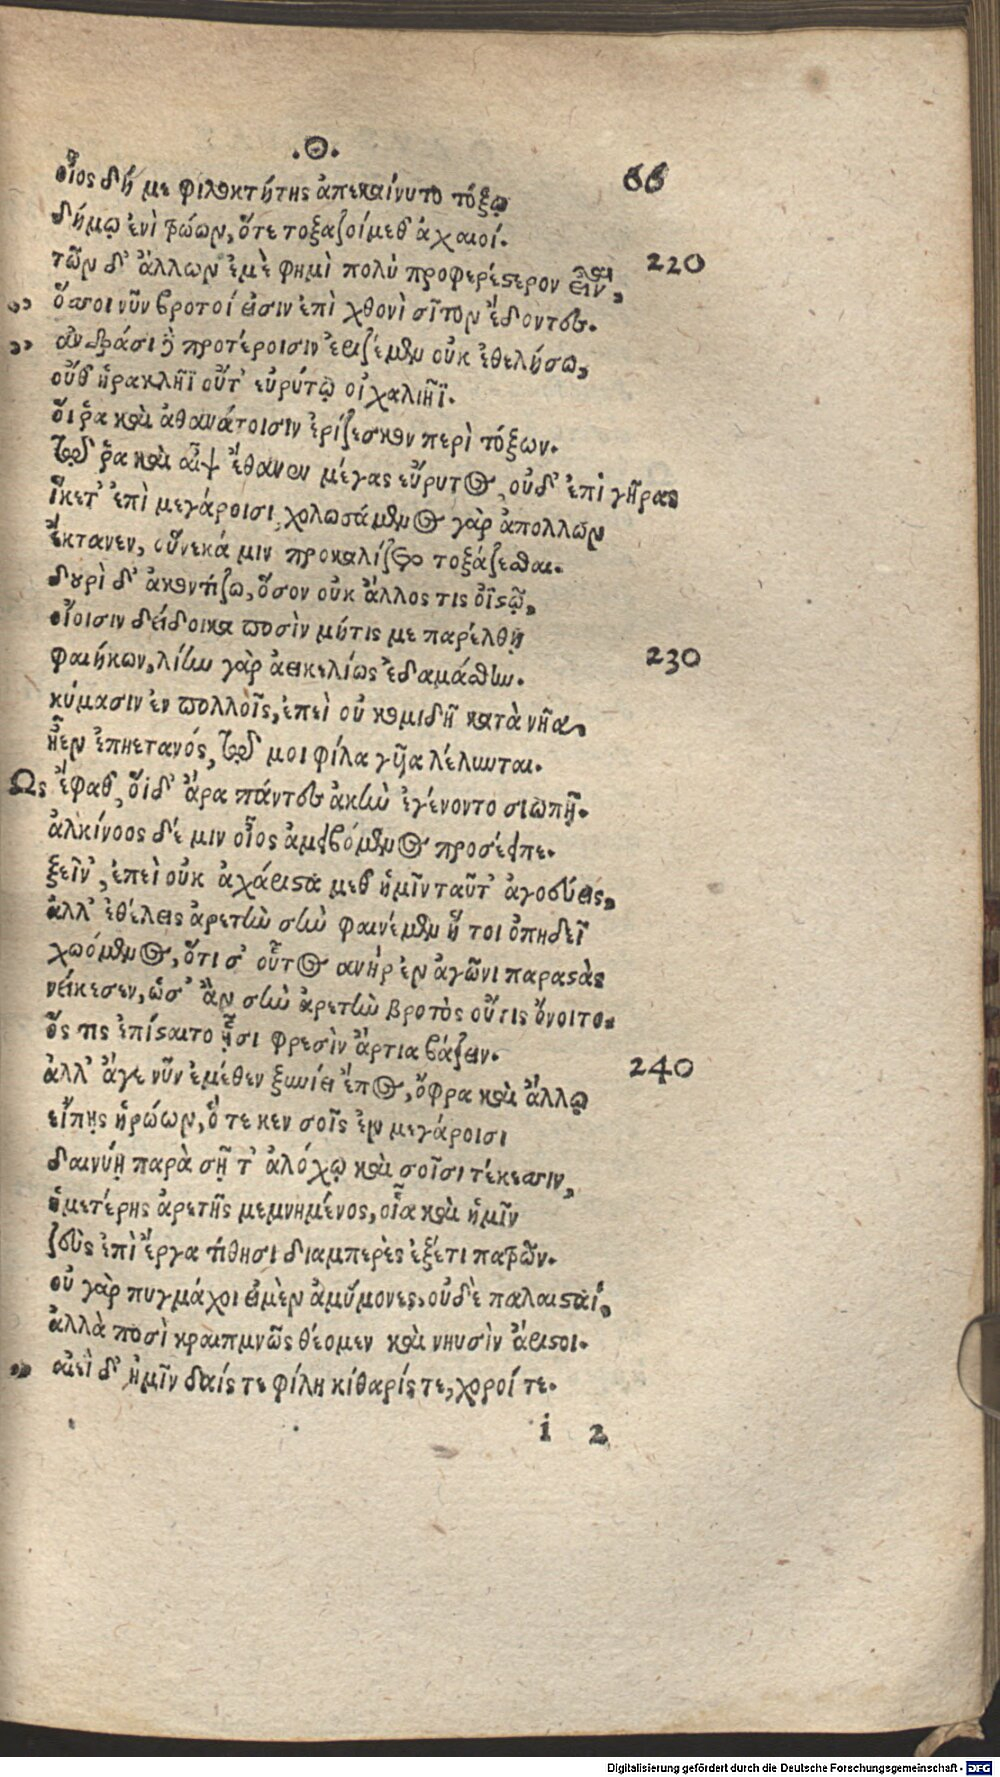 .Θ. 66
οἶος δή με φιλοκτήτης ἀπεκαίνυτο τόξῳ
δήμῳ ἐνὶ τρώων, ὅτε τοξαζοίμεθ᾽ ἀχαιοί.
τῶν δ᾽ ἄλλων ἐμὲ φημὶ πολὺ προφερέστερον εἶναι, 220
ὅσσοι νῦν βροτοί εἰσιν ἐπὶ χθονὶ σῖτον ἔδοντες.
ἀνδράσι δὲ προτέροισιν ἐριζέμεν οὐκ ἐθελήσω,
οὔθ᾽ ἡρακλῆϊ οὔτ᾽ εὐρύτῳ οἰχαλιῆϊ.
οἵ ῥα καὶ ἀθανάτοισιν ἐρίζεσκον περὶ τόξων.
τῷ ῥα καὶ αἶψ᾽ ἔθανεν μέγας εὔρυτος, οὐδ᾽ ἐπὶ γῆρας
ἵκετ᾽ ἐπὶ μεγάροισι, χολωσάμενος γὰρ ἀπολλὼν
ἔκτανεν, οὕνεκά μιν προκαλίζετο τοξάζεσθαι.
δουρὶ δ᾽ ἀκοντίζω, ὅσον οὐκ ἄλλος τις ὀϊστῷ,
οἴοισιν δείδοικα ποσὶν μήτις με παρέλθῃ
φαιήκων, λίην γὰρ ἀεικελίως ἐδαμάσθην. 230
κύμασιν ἐν πολλοῖς, ἐπεὶ οὐ κομιδὴ κατὰ νῆα,
ἦεν ἐπηετανός, τῷ μοι φίλα γυῖα λέλυνται.
Ως ἔφαθ᾽, οἵδ᾽ ἄρα πάντες ἀκὴν ἐγένοντο σιωπῇ.
ἀλκίνοος δέ μιν οἶος ἀμειβόμενος προσέειπε.
ξεῖν᾽, ἐπεὶ οὐκ ἀχάριστα μεθ᾽ ἡμῖν ταῦτ᾽ ἀγορεύεις,
ἀλλ᾽ ἐθέλεις ἀρετὴν σὴν φαινέμεν ἥ τοι ὀπηδεῖ
χωόμενος, ὅτι σ᾽ οὗτος ἀνὴρ ἐν ἀγῶνι παραστὰς
νείκεσεν, ὡς ἂν σὴν ἀρετὴν βροτὸς οὔτις ὄνοιτο.
ὅς τις ἐπίσταιτο ᾗσι φρεσὶν ἄρτια βάζειν.
ἀλλ᾽ ἄγε νῦν ἐμέθεν ξυνίει ἔπος, ὄφρα καὶ ἄλλῳ 240
εἴπῃς ἡρώων, ὅ τε κεν σοῖς ἐν μεγάροισι
δαινύῃ παρὰ σῇ τ᾽ ἀλόχῳ καὶ σοῖσι τέκεσσιν,
ἡμετέρης ἀρετῆς μεμνημένος, οἷα καὶ ἡμῖν
ζεὺς ἐπὶ ἔργα τίθησι διαμπερὲς ἐξέτι πατρῶν.
οὐ γὰρ πυγμάχοι εἰμὲν ἀμύμονες, οὐδὲ παλαισταί,
ἀλλὰ ποσὶ κραιπνῶς θέομεν καὶ νηυσὶν ἄριστοι.
αἰεὶ δ᾽ ἡμῖν δαίς τε φίλη κίθαρίς τε, χοροί τε.
i 2
Digitalisierung gefördert durch die Deutsche Forschungsgemeinschaft - DFG